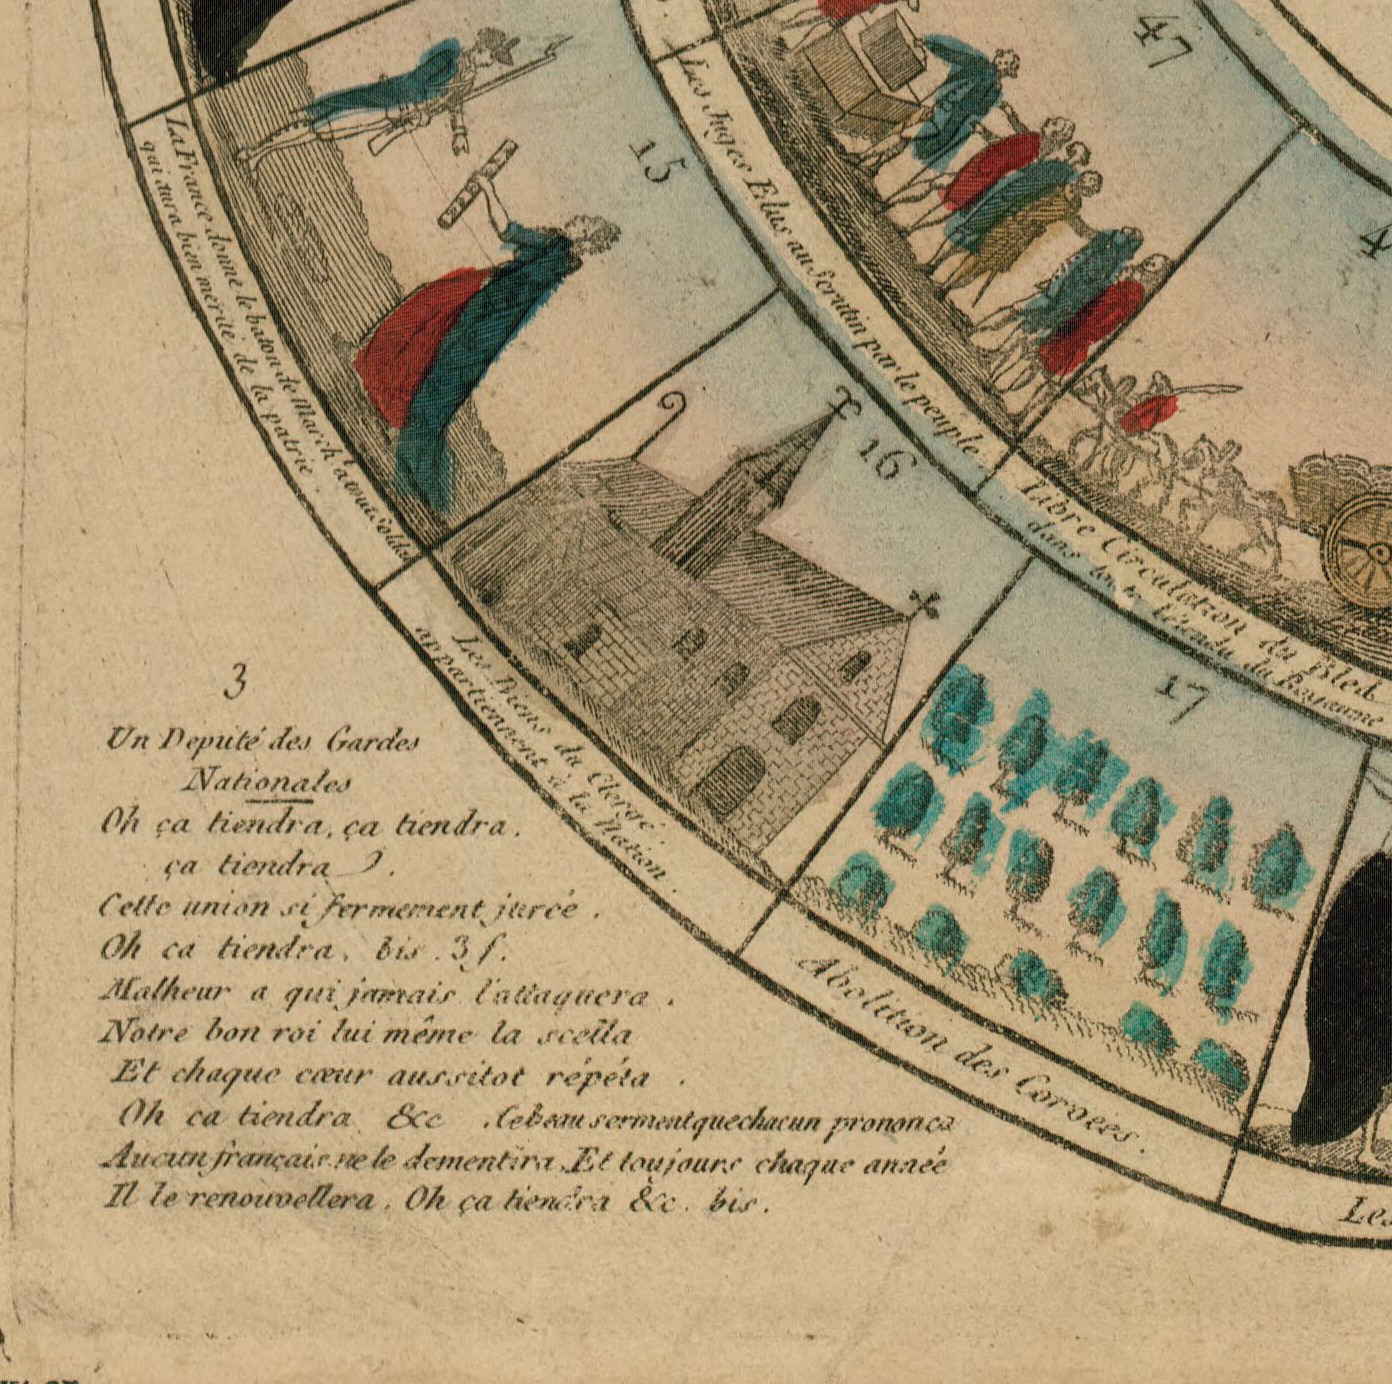 47
15
La France donne le baton de March.l a tout Soldat
qui aura bien mérité de la patrie.
Les Juges Elus au Scrutin par le peuple
4
16
Les Biens du Clergé
appartiennent à la Nation.
Libre Circulation du Bled
dans toute l'étendu du Royaume
17
Abolition des Corvées.
Les
3
Un Deputé des Gardes
Nationales
Oh ça tiendra, ça tiendra,
ça tiendra.
Cette union si fermement jurée.
Oh ca tiendra, bis. 3 f.
Malheur a qui jamais l'attaquera.
Notre bon roi lui même la scella
Et chaque cœur aussitot répéta.
Oh ca tiendra &c. Ce beau serment que chacun prononca
Aucun français ne le dementira, Et toujours chaque année
Il le renouvellera. Oh ça tiendra &c. bis.